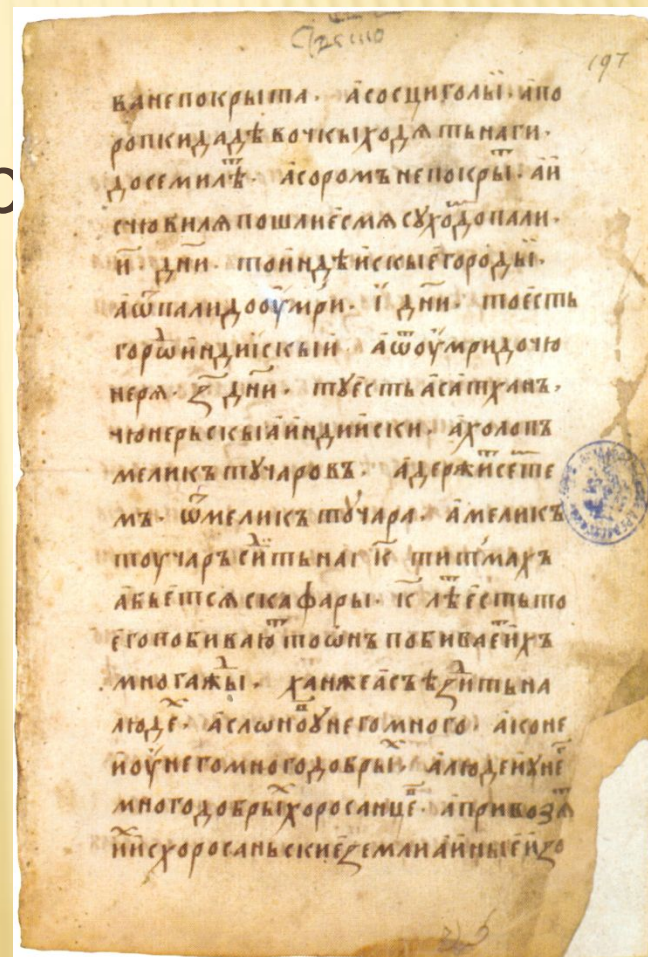 197
вanепокрыта· асосциголы· апо
ропкидадѣвочкыходятьнаги·
досемилѣт· асоромънепокрыт· аи
счювиляпошлиесмясухѡдопали·
и҃· дн҃и· тоиндѣискыегороды·
аѿпалидооумри· і҃ дн҃и· тоесть
горѡдиндиискый· аѿоумридочю
неря· ѕ҃ дн҃и· туестьасатханъ·
чюнерьскыаиндииски· ахолопъ
меликътучаровъ· адержитсете
мъ· ѿмеликътучара· амеликъ
тоучаръсидитьнаг к҃ титмяхъ
абьетсяскафары· к҃ лѣтестьто
егопобиваютоѡнъпобиваетихъ
многажды· ханжеасъѣздитьна
людех· аслоновоунегомного· аконе
иоунегомногодобрых· алюдеиуне
многодобрыххоросанцев· апривозят
ихисхоросаньскиеземлиаиныеизо